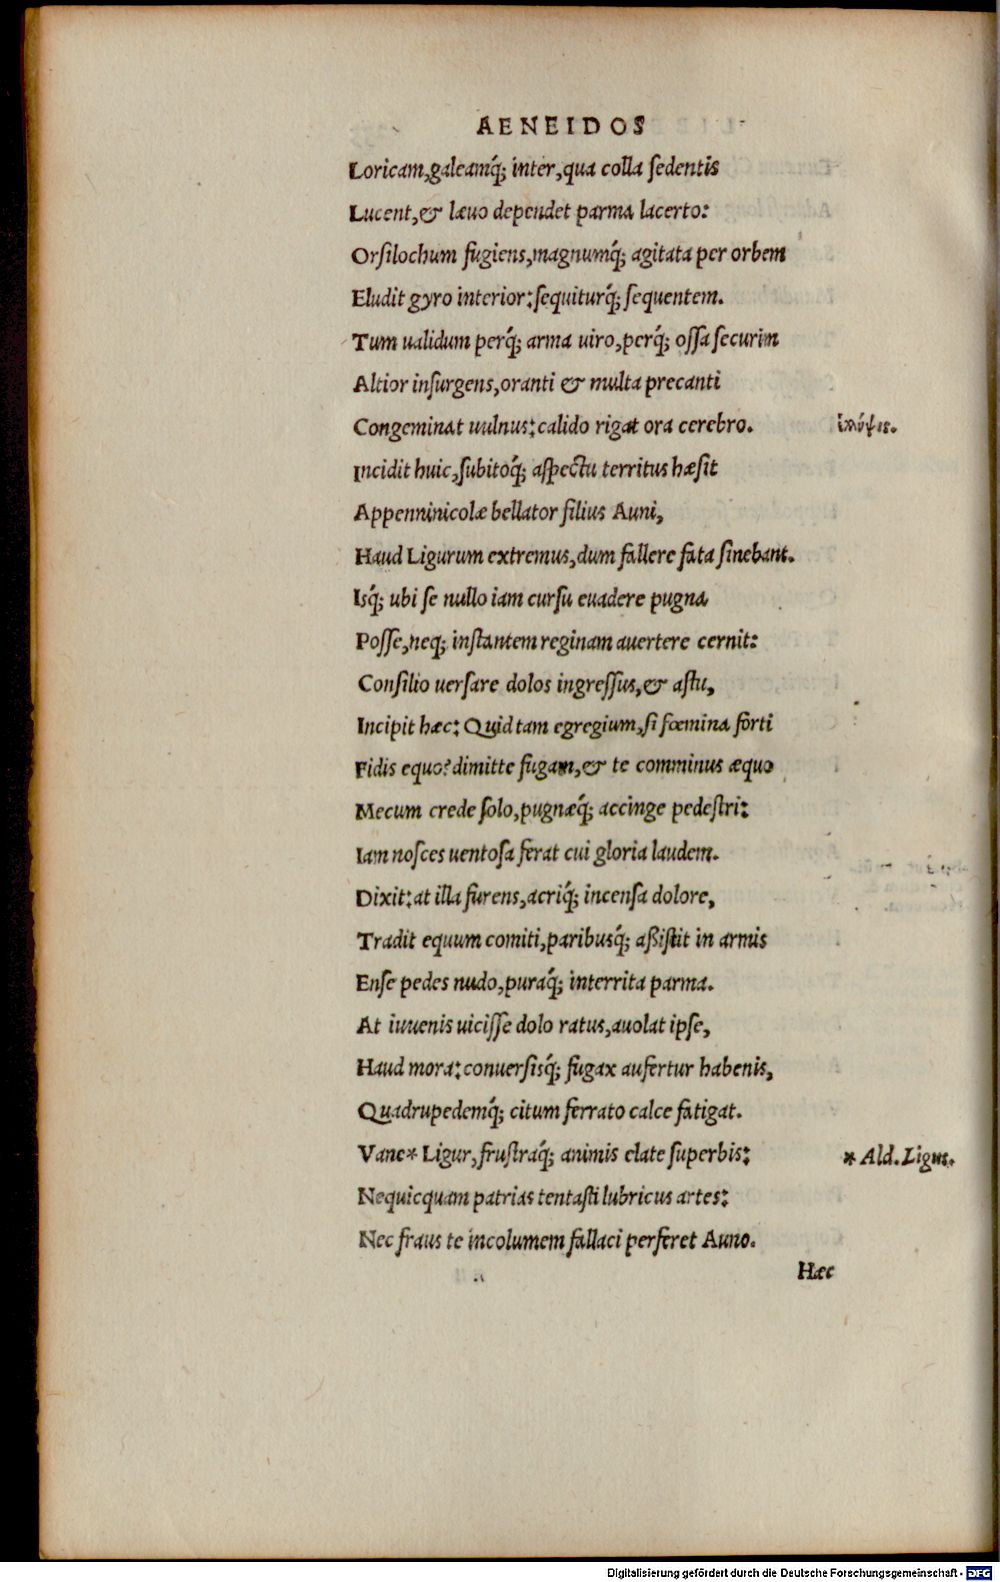 AENEIDOS
Loricam, galeamq́; inter, qua colla sedentis
Lucent, & læuo dependet parma lacerto:
Orsilochum fugiens, magnumq́; agitata per orbem
Eludit gyro interior: sequiturq́; sequentem.
Tum ualidum perq́; arma uiro, perq́; ossa securim
Altior insurgens, oranti & multa precanti
Congeminat uulnus: calido rigat ora cerebro.
Incidit huic, subitoq́; aspectu territus hæsit
Appenninicolæ bellator filius Auni,
Haud Ligurum extremus, dum fallere fata sinebant.
Isq́; ubi se nullo iam cursu euadere pugna
Posse, neq; instantem reginam auertere cernit:
Consilio uersare dolos ingressus, & astu,
Incipit hæc: Quid tam egregium, si fœmina forti
Fidis equo? dimitte fugam, & te comminus æquo
Mecum crede solo, pugnæq́; accinge pedestri:
Iam nosces uentosa ferat cui gloria laudem.
Dixit: at illa furens, acriq́; incensa dolore,
Tradit equum comiti, paribusq́; aßistit in armis
Ense pedes nudo, puraq́; interrita parma.
At iuuenis uicisse dolo ratus, auolat ipse,
Haud mora: conuersisq́; fugax aufertur habenis,
Quadrupedemq́; citum ferrato calce fatigat.
Vane* Ligur, frustraq́; animis elate superbis:
* Ald. Ligus.
Nequicquam patrias tentasti lubricus artes:
Nec fraus te incolumem fallaci perferet Auno.
Hæc
Digitalisierung gefördert durch die Deutsche Forschungsgemeinschaft - DFG